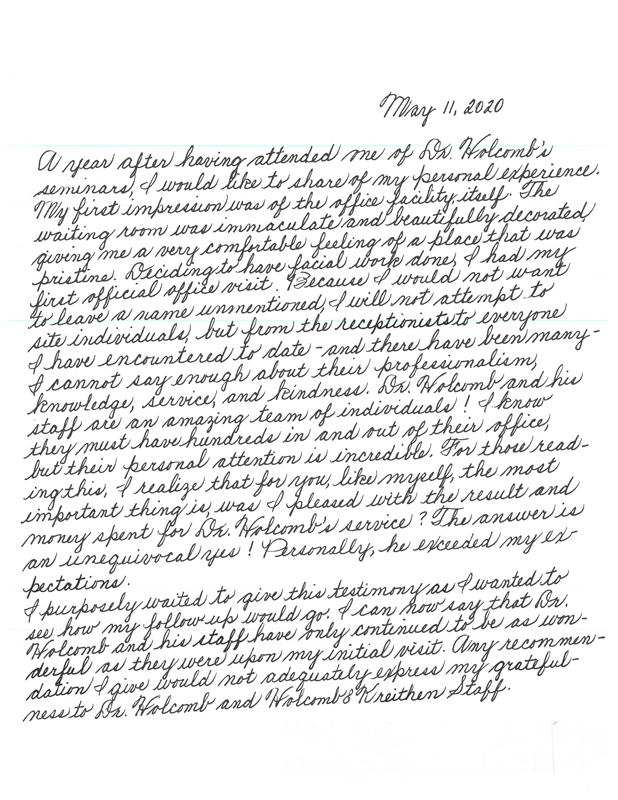 May 11, 2020
A year after having attended one of Dr. Holcomb's
seminars, I would like to share of my personal experience.
My first impression was of the office facility itself. The
waiting room was immaculate and beautifully decorated
giving me a very comfortable feeling of a place that was
pristine. Deciding to have facial work done, I had my
first official office visit. Because I would not want
to leave a name unmentioned, I will not attempt to
site individuals, but from the receptionists to everyone
I have encountered to date - and there have been many -
I cannot say enough about their professionalism,
knowledge, service, and kindness. Dr. Holcomb and his
staff are an amazing team of individuals! I know
they must have hundreds in and out of their office,
but their personal attention is incredible. For those read-
ing this, I realize that for you, like myself, the most
important thing is, was I pleased with the result and
money spent for Dr. Holcomb's service? The answer is
an unequivocal yes! Personally, he exceeded my ex-
pectations.
I purposely waited to give this testimony as I wanted to
see how my follow up would go. I can now say that Dr.
Holcomb and his staff have only continued to be as won-
derful as they were upon my initial visit. Any recommen-
dation I give would not adequately express my grateful-
ness to Dr. Holcomb and Holcomb & Kreithen Staff.